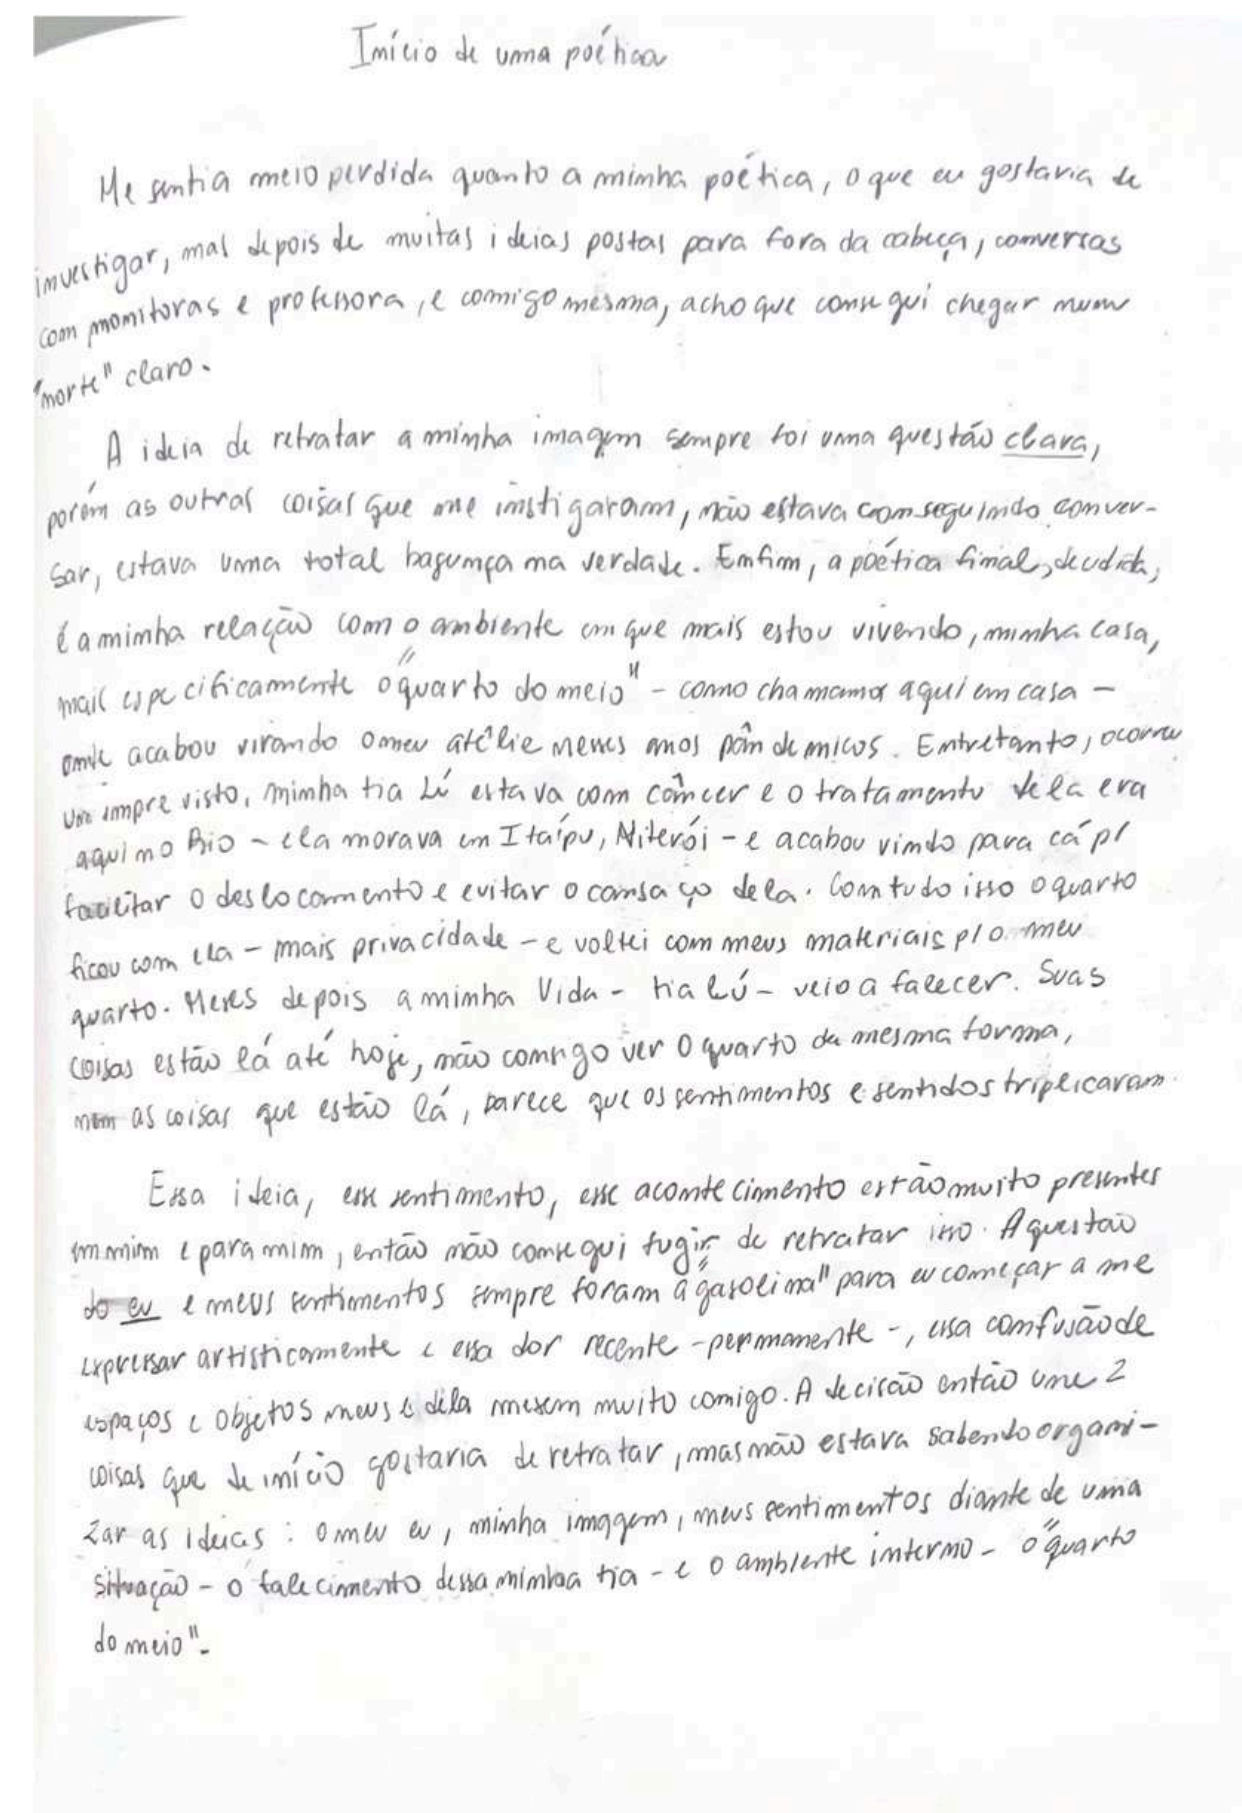 Início de uma poética
Me sentia meio perdida quanto a minha poética, o que eu gostaria de
investigar, mas depois de muitas ideias postas para fora da cabeça, conversas
com monitoras e professora, e comigo mesma, acho que consegui chegar num
"norte" claro.
A ideia de retratar a minha imagem sempre foi uma questão clara,
porém as outras coisas que me instigaram, não estava conseguindo conver-
sar, estava uma total bagunça na verdade. Enfim, a poética final, decidida,
é a minha relação com o ambiente em que mais estou vivendo, minha casa,
mais especificamente "o quarto do meio" - como chamamos aqui em casa -
onde acabou virando o meu atêlie nesses anos pândemicos. Entretanto, ocorreu
um imprevisto, minha tia Lú estava com câncer e o tratamento dela era
aqui no Rio - ela morava em Itaípu, Niterói - e acabou vindo para cá p/
facilitar o deslocamento e evitar o cansaço dela. Com tudo isso o quarto
ficou com ela - mais privacidade - e voltei com meus materiais p/ o meu
quarto. Meses depois a minha Vida - tia Lú - veio a falecer. Suas
coisas estão lá até hoje, não consigo ver o quarto da mesma forma,
nem as coisas que estão lá, parece que os sentimentos e sentidos triplicaram.
Essa ideia, esse sentimento, esse acontecimento estão muito presentes
em mim e para mim, então não consegui fugir de retratar isso. A questão
do eu e meus sentimentos sempre foram a "gasolina" para eu começar a me
expressar artisticamente e essa dor recente - permanente -, essa confusão de
espaços e objetos meus e dela mexem muito comigo. A decisão então une 2
coisas que de início gostaria de retratar, mas não estava sabendo organi-
zar as ideias: o meu eu, minha imagem, meus sentimentos diante de uma
situação - o falecimento dessa minha tia - e o ambiente interno - "o quarto
do meio" -